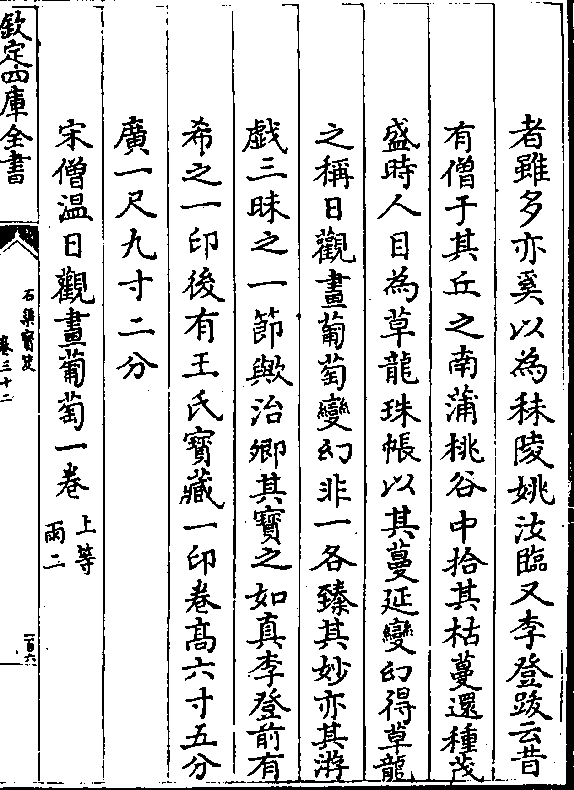 者雖多亦奚以為秣陵姚汝臨又李登跋云昔
有僧于其丘之南蒲桃谷中拾其枯蔓還種茂
盛時人目為草龍珠帳以其蔓延變幻得草龍
之稱日觀畫葡萄變幻非一各臻其妙亦其游
戯三昧之一節歟治卿其寶之如真李登前有
希之一印後有王氏寳藏一印卷髙六寸五分
廣一尺九寸二分
宋僧温日觀畫葡萄一卷 上等
雨二
欽定四庫全書
石渠寳笈
卷三十二
一百六